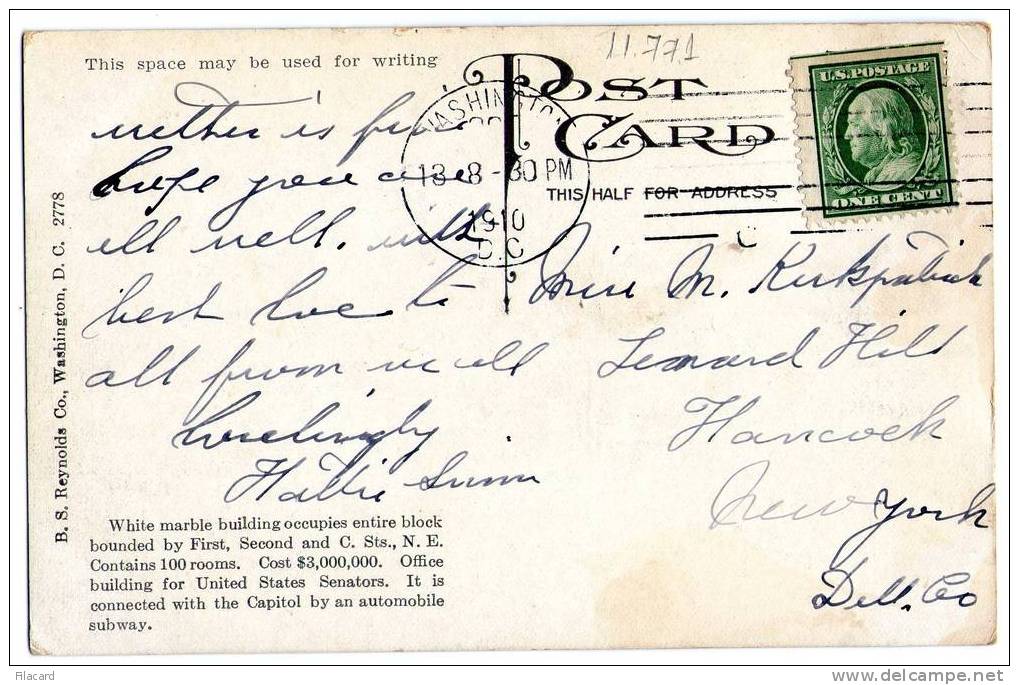 11.771
This space may be used for writing
POST CARD
THIS HALF FOR ADDRESS
U.S. POSTAGE
ONE CENT
WASHINGTON
13 8-30 PM
1910
D.C.
mother is fine
hope you are
all well. with
best love to
all from us all
Lovingly
Hattie
Miss M. Kirkpatrick
Leonard Hill
Hancock
New York
Dell. Co
B. S. Reynolds Co., Washington, D. C. 2778
White marble building occupies entire block
bounded by First, Second and C. Sts., N. E.
Contains 100 rooms. Cost $3,000,000. Office
building for United States Senators. It is
connected with the Capitol by an automobile
subway.
Filacard
www.delcampe.net